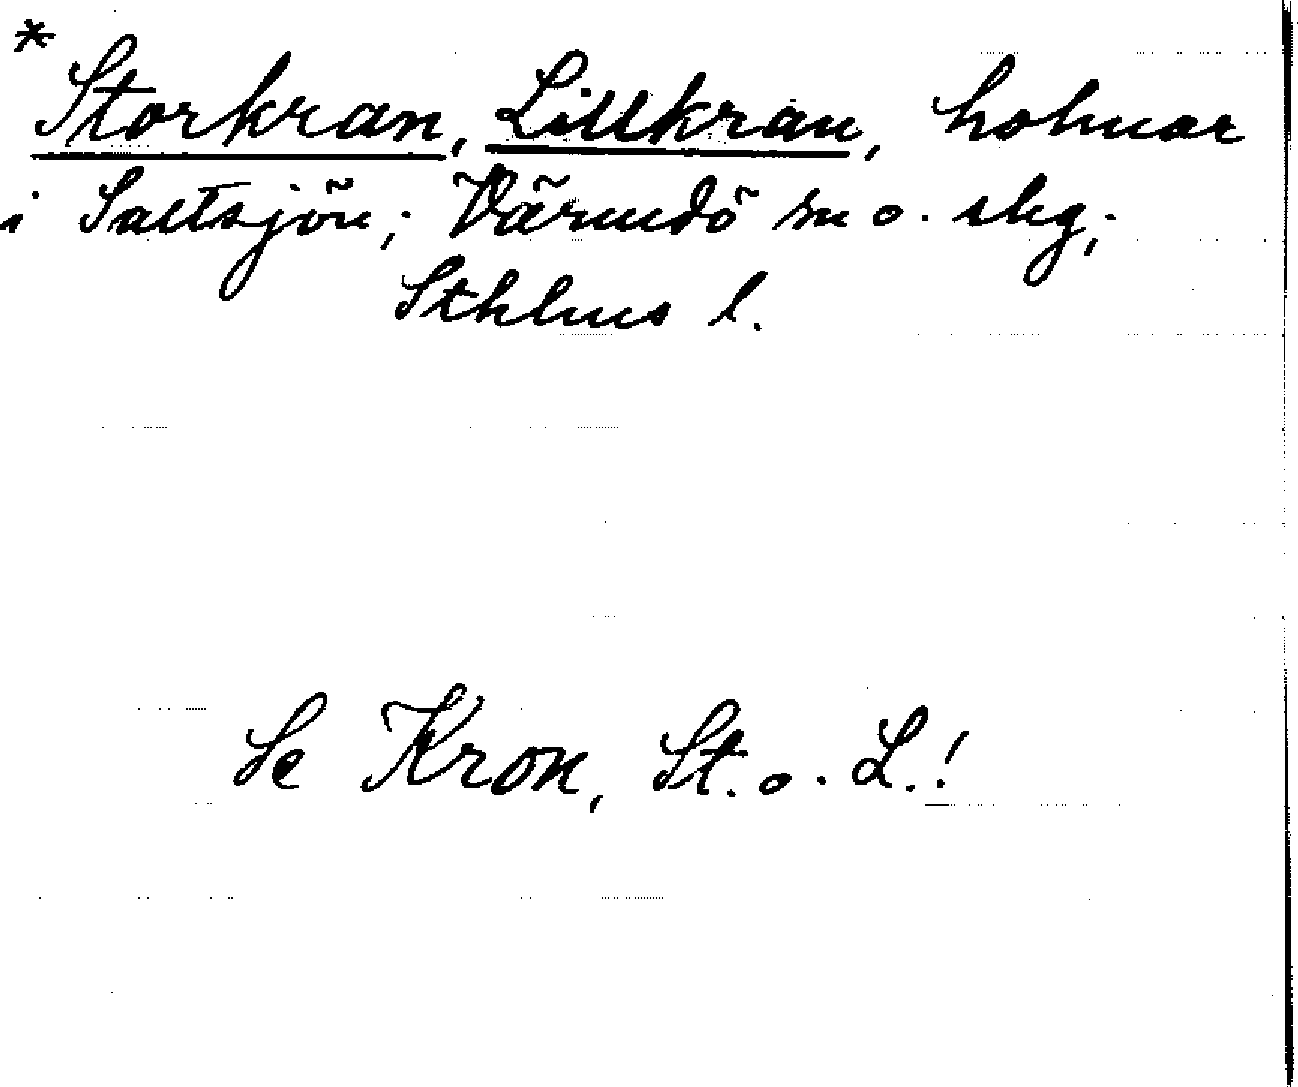 * Storkran, Lillkran, holmar
i Saltsjön; Värmdö sn o. skg;
Sthlms l.
Se Kron, St. o. L.!